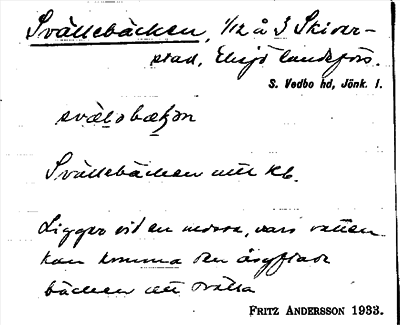 Svällebäcken, 1/12 å 3 Skiver-
stad, Eksjö landsförs.
S. Vedbo hd, Jönk. l.
sväl₀bækən
Svällebäcken utt kb.
Ligger vid en mosse, vars vatten
kan komma den åsyftade
bäcken att svälla
FRITZ ANDERSSON 1933.